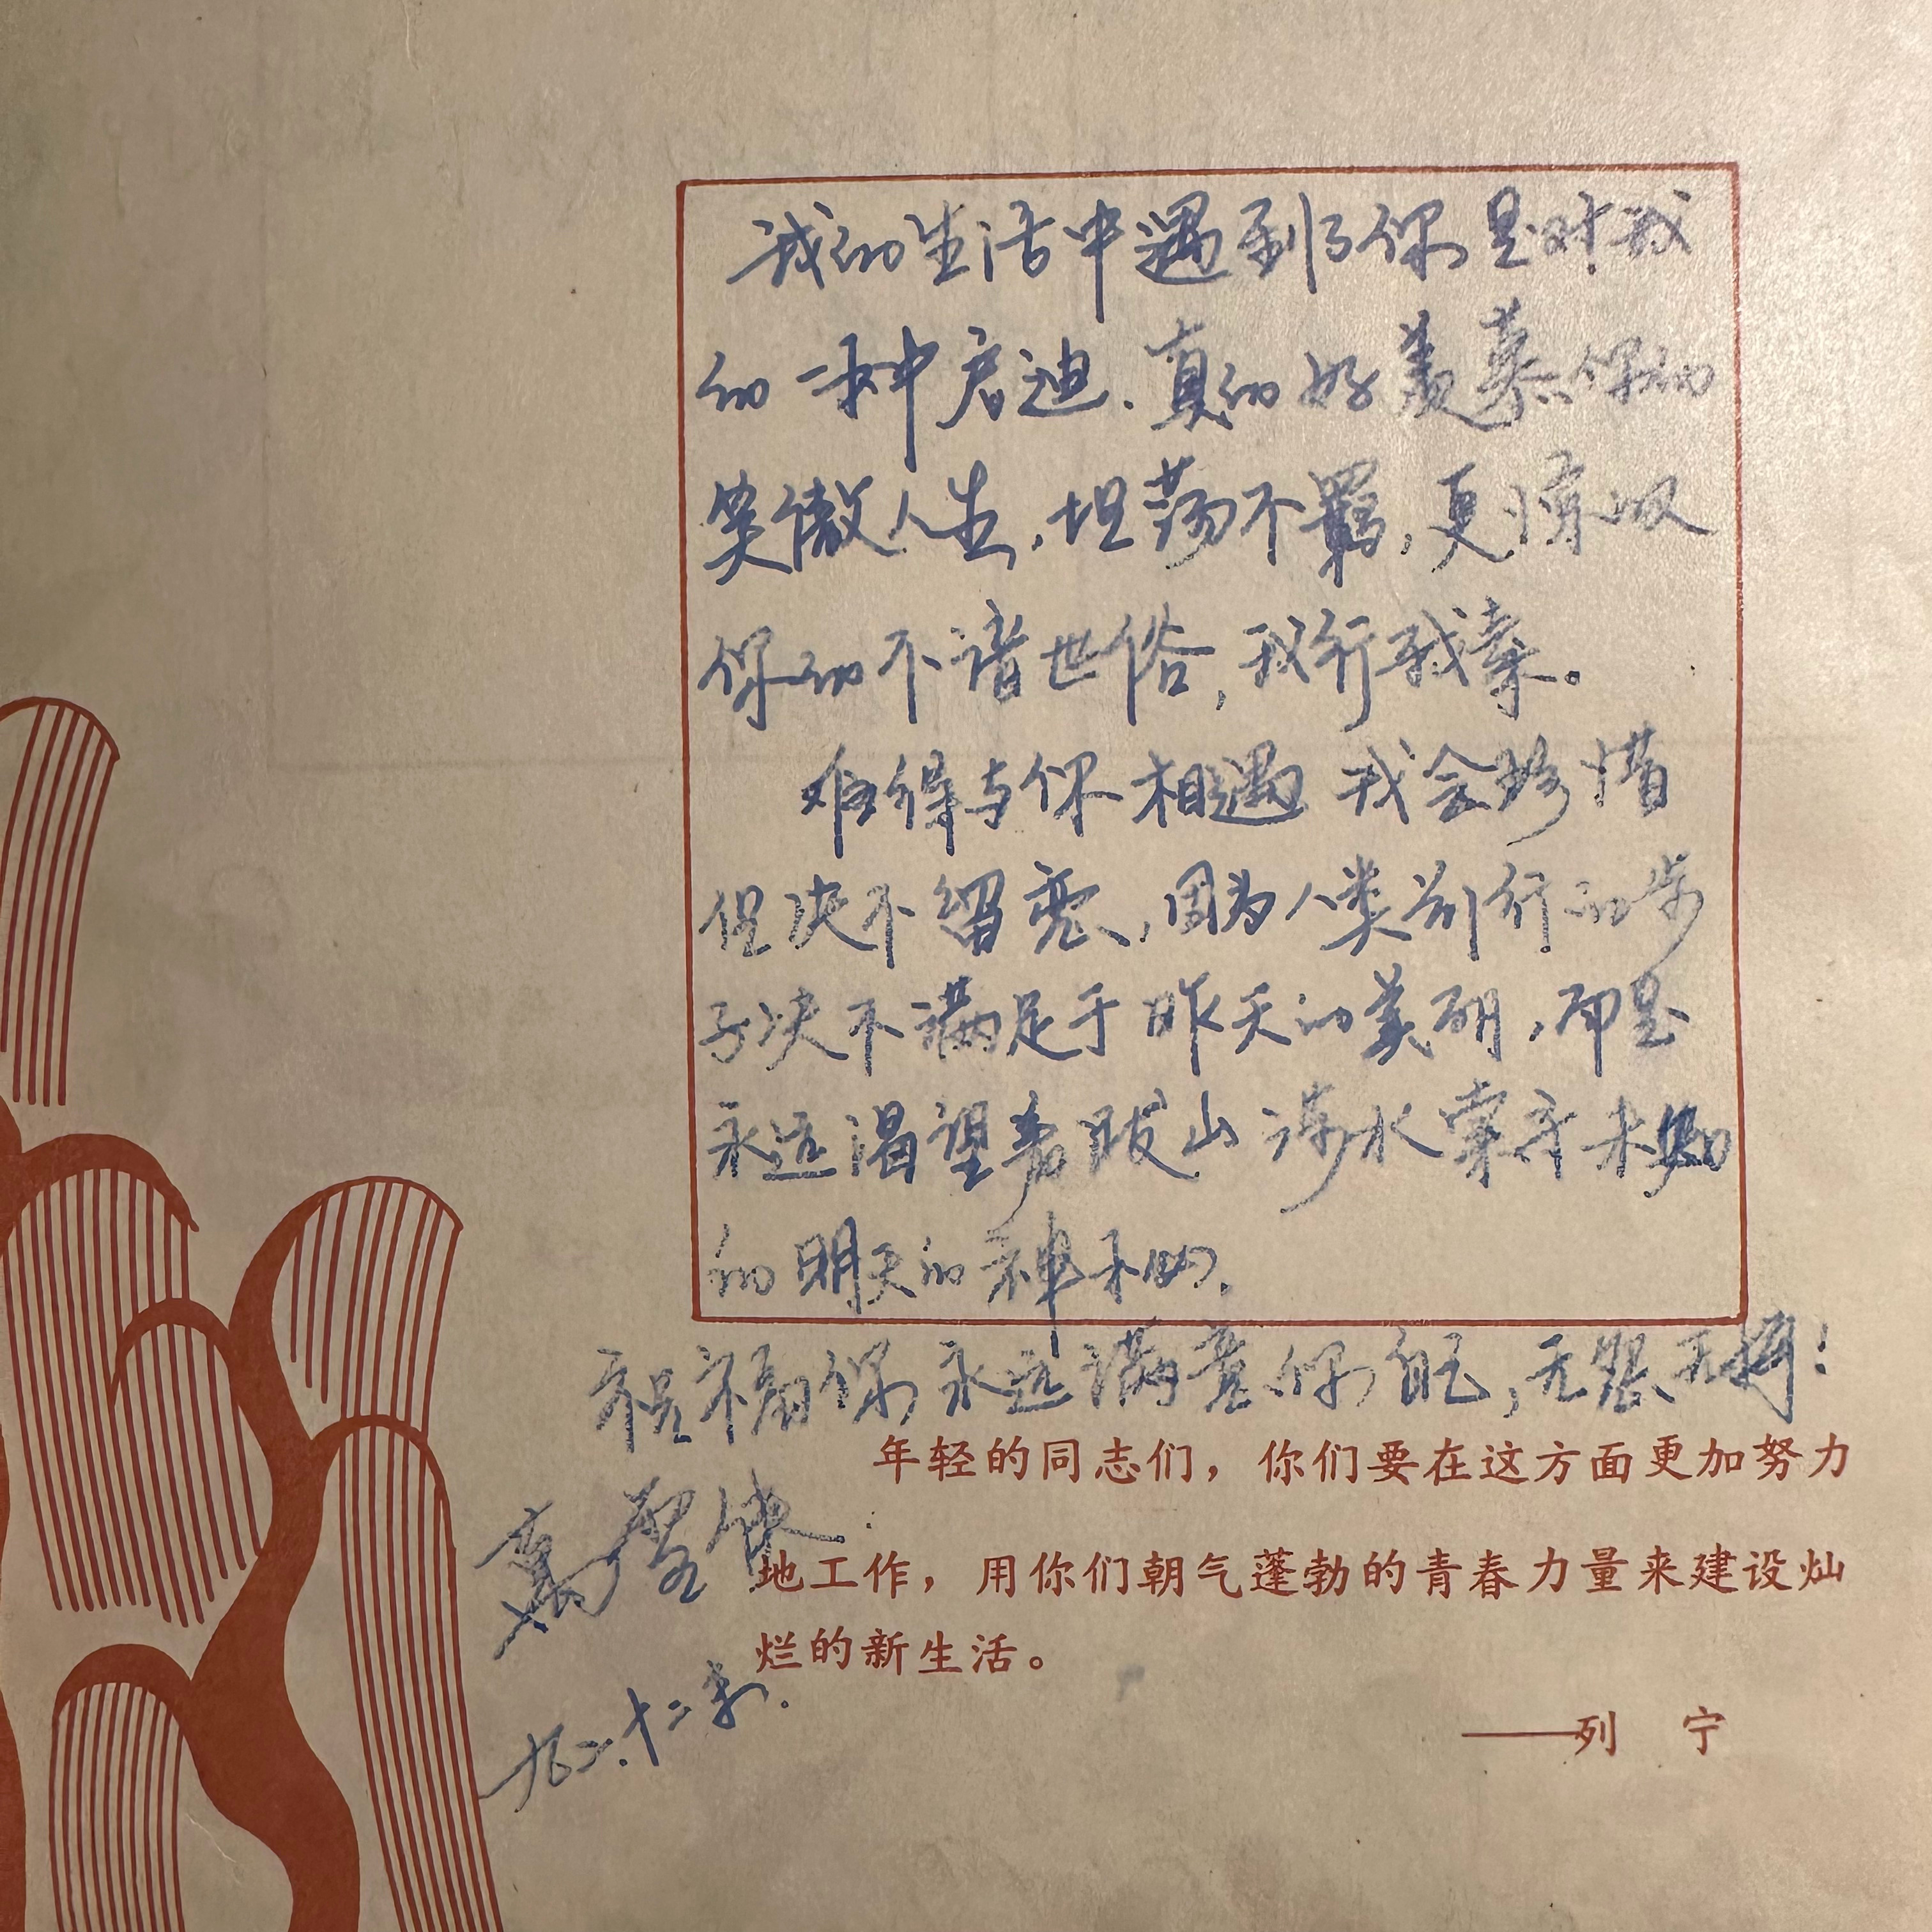 我的生活中遇到了你是对我
的一种启迪.真的好羡慕你的
笑傲人生,坦荡不羁,更惊叹
你的不谙世俗,我行我素。
难得与你相遇 我会珍惜
但决不留恋,因为人类前行的步
子决不满足于昨天的美丽,而是
永远渴望着跋山涉水索寻未知
的明天的神秘.
祝福你永远满意你自己,无怨无悔!
年轻的同志们，你们要在这方面更加努力
地工作，用你们朝气蓬勃的青春力量来建设灿
烂的新生活。
——列 宁
九二.十二